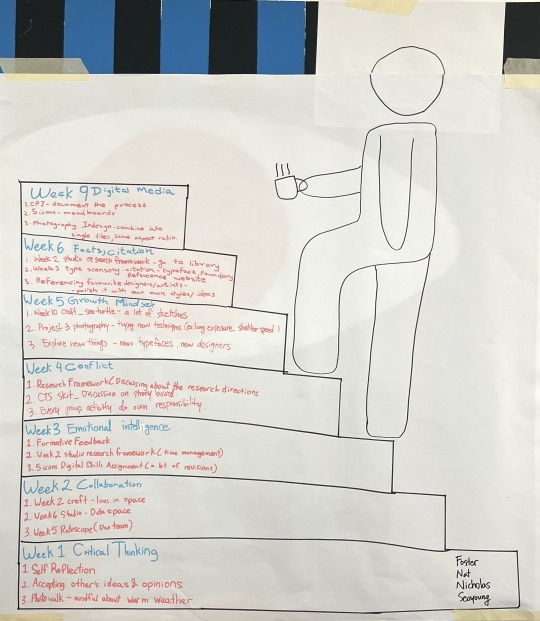 Week 9 Digital Media
1. CPJ - document the process
2. 5 icons - moodboards
3. Photography Indesign - combine into
single files, same aspect ratio.
Week 6 Facts, Citation
1. Week 2 studio research framework - go to library
2. Week 3 type - citation - typeface, foundary
Reference website
3. Referencing favourite designers/artists -
polish it with our own styles/ideas
Week 5 Growth Mindset
1. Week 10 Craft_ sea-turtle - a lot of sketches
2. Project 3 photography - trying new techniques (ex. long exposure, shutter speed)
3. Explore new things - new typefaces, new designers
Week 4 Conflict
1. Research Framework (Discussing about the research directions
2. CTS Skit_ Discussion on story board.
3. Every group activity do own responsibility.
Week 3 Emotional intelligence
1. Formative Feedback
2. Week 2 studio research framework (time management)
3. 5 icons Digital Skills Assignment (a lot of revisions)
Week 2 Collaboration
1. Week 2 craft - lines in space
2. Week 6 Studio - Data space
3. Week 5 Rotoscope (Duo team)
Week 1 Critical Thinking
1. Self Reflection
2. Accepting other's ideas & opinions
3. Photowalk - mindful about warm weather
Foster
Nat
Nicholas
Seoyoung